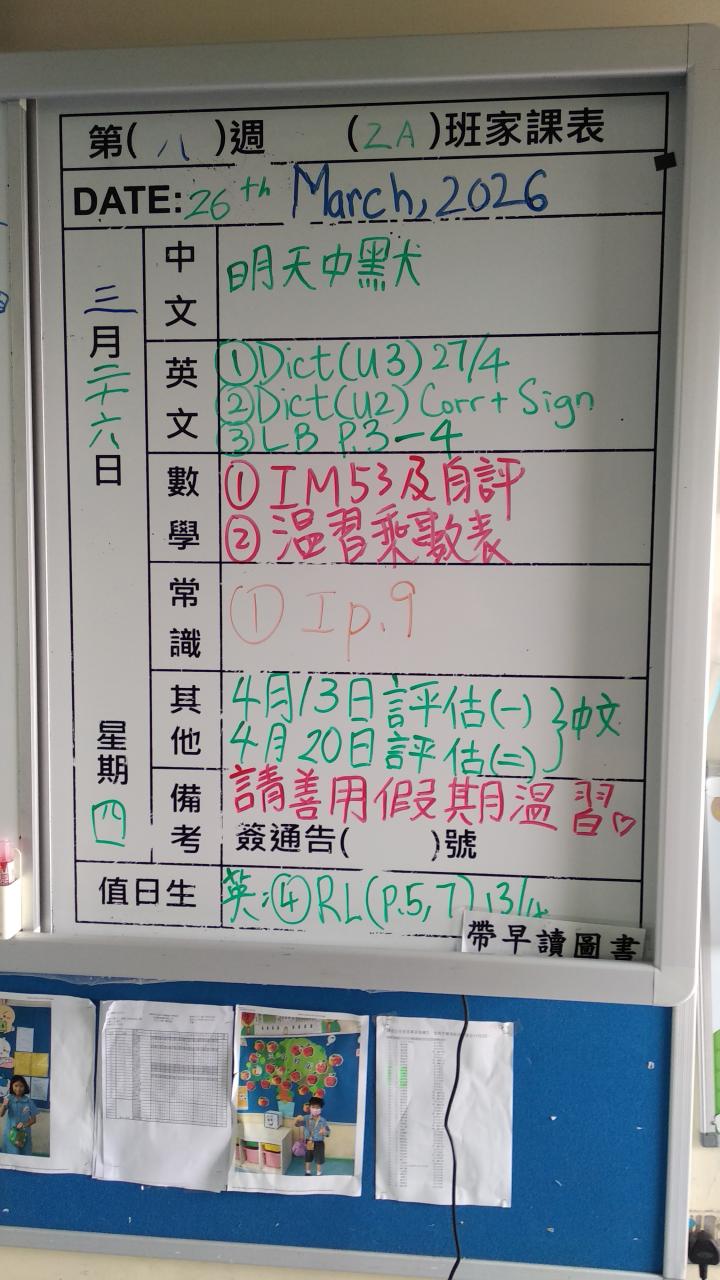 第( 八 )週 (2A)班家課表
DATE: 26th March, 2026
三月二十六日
星期四
中文
明天中默
英文
①Dict(U3) 27/4
②Dict(U2) Corr+ Sign
③LB P.3-4
數學
①IM53及自評
②溫習乘數表
常識
①Ip.9
其他
4月13日評估(一)
4月20日評估(二)
}中文
備考
請善用假期溫習♡
簽通告( )號
值日生
英:④RL(P.5,7) 13/4
帶早讀圖書